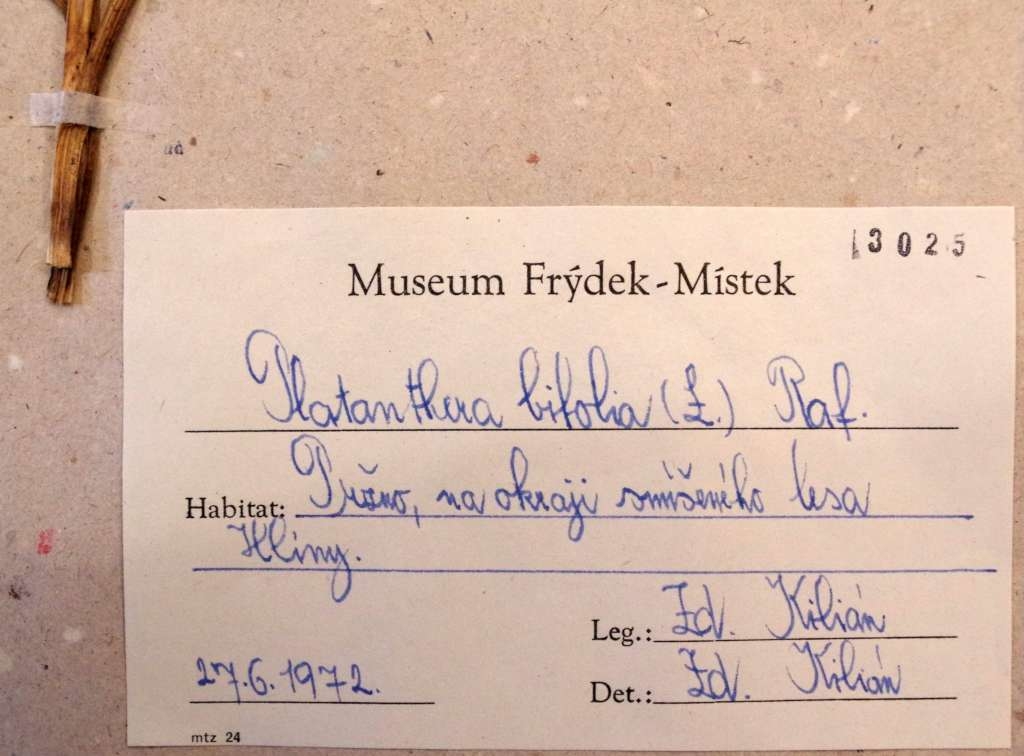 3025
Museum Frýdek-Místek
Platanthera bifolia (L.) Raf.
Habitat: Pržno, na okraji smíšeného lesa
Hliny.
Leg.: Zd. Kilián
27.6.1972. Det.: Zd. Kilián
mtz 24